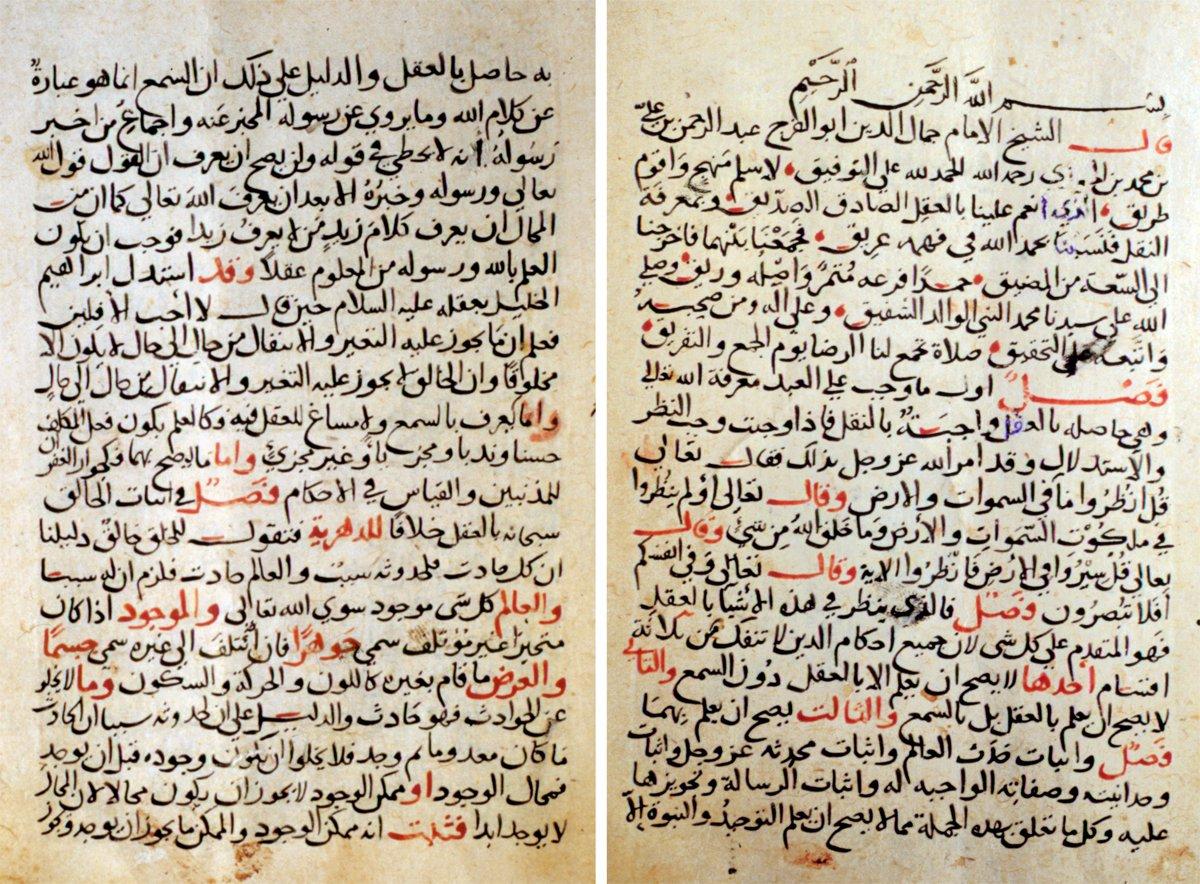 بسم الله الرحمن الرحيم
قال الشيخ الامام جمال الدين ابو الفرج عبد الرحمن بن علي
بن محمد بن الجوزي رحمه الله الحمد لله علي التوفيق لاسلم منهج واقوم
طريق الذي انعم علينا بالعقل الصادق الصديق وبمعرفة
النقل بحمد الله في فهمه عريق فجمعنا بينهما فاخرجنا
الي السعة من المضيق حمدا فرعه مثمر واصله وريق وصلي
الله علي سيدنا محمد النبي الوالد الشفيق وعلي اله ومن صحبه
واتبعه علي التحقيق صلاة تجمع لنا الرضا يوم الجمع والتفريق
فصل اول ما وجب علي العبد معرفة الله تعالي
وهي حاصله بالعقل واجبة بالنقل فاذا وجبت وجب النظر
والاستدلال وقد امر الله عز وجل بذلك فقال تعالي
قل انظروا ماذا في السموات والارض وقال تعالي اولم ينظروا
في ملكوت السموات والارض وما خلق الله من شيء وقال
تعالي قل سيروا في الارض فانظروا الاية وقال تعالي وفي انفسكم
افلا تبصرون فصل فالذي ينظر في هذه الاشيا بالعقل
فهو المتقدم علي كل شي لان جميع احكام الدين لا تنفك من ثلاثة
اقسام احدها لا يصح ان يعلم الا بالعقل دون السمع والثاني
لا يصح ان يعلم بالعقل بل بالسمع والثالث يصح ان يعلم بهما
فصل واثبات حدث العالم واثبات محدثه عز وجل واثبات
وحدانيته وصفاته الواجبه له واثبات الرسالة وتجويزها
عليه وكل ما تعلق بهذه الجملة مما لا يصح ان يعلم التوحيد والنبوة الا
به حاصل بالعقل والدليل علي ذلك ان السمع انما هو عبارة
عن كلام الله وما يروي عن رسوله المخبر عنه واجماع من اخبر
رسوله انه لا يخطي في قوله ولن يصح ان يعرف ان القول قول الله
تعالي ورسوله وخبره الا بعد ان يعرف الله تعالي كما ان من
المحال ان يعرف كلام زيد من لا يعرف زيدا فوجب ان يكون
العلم بالله ورسوله من المعلوم عقلا وقد استدل ابراهيم
الخليل بعقله عليه السلام حين قال لا احب الافلين
فعلم ان ما يجوز عليه التغير والانتقال من حال الي حال لا يكون الا
مخلوقا وان الخالق لا يجوز عليه التغير والانتقال من حال الي حال
واما يعرف بالسمع ولا مساغ للعقل فيه وكالعلم بكون فعل المكلف
حسنا وندبا ومجزيا وغير مجزي واما ما يصح بهما فكجواز الغفران
للمذنبين والقياس في الاحكام فصل في اثبات الخالق
سبحانه بالعقل خلافا للدهرية فنقول للخلق خالق دليلنا
ان كل حادث فلحدوثه سبب والعالم حادث فلزم ان له سببا
والعالم كل شي موجود سوي الله تعالي والموجود اذا كان
متحيزا غير مؤتلف سمي جوهرا فان ائتلف الي غيره سمي جسما
والعرض ما قام بغيره كاللون والحركة والسكون وما لا يخلو
عن الحوادث فهو حادث والدليل علي ان لحدوثه سببا ان الحادث
ما كان معدوما ثم وجد فلا يخلوا ان يكون وجوده قبل ان يوجد
محال الوجود او ممكن الوجود لا يجوز ان يكون محالا لان المحال
لا يوجد ابدا فثبت انه ممكن الوجود والممكن ما يجوز ان يوجد ويجوز